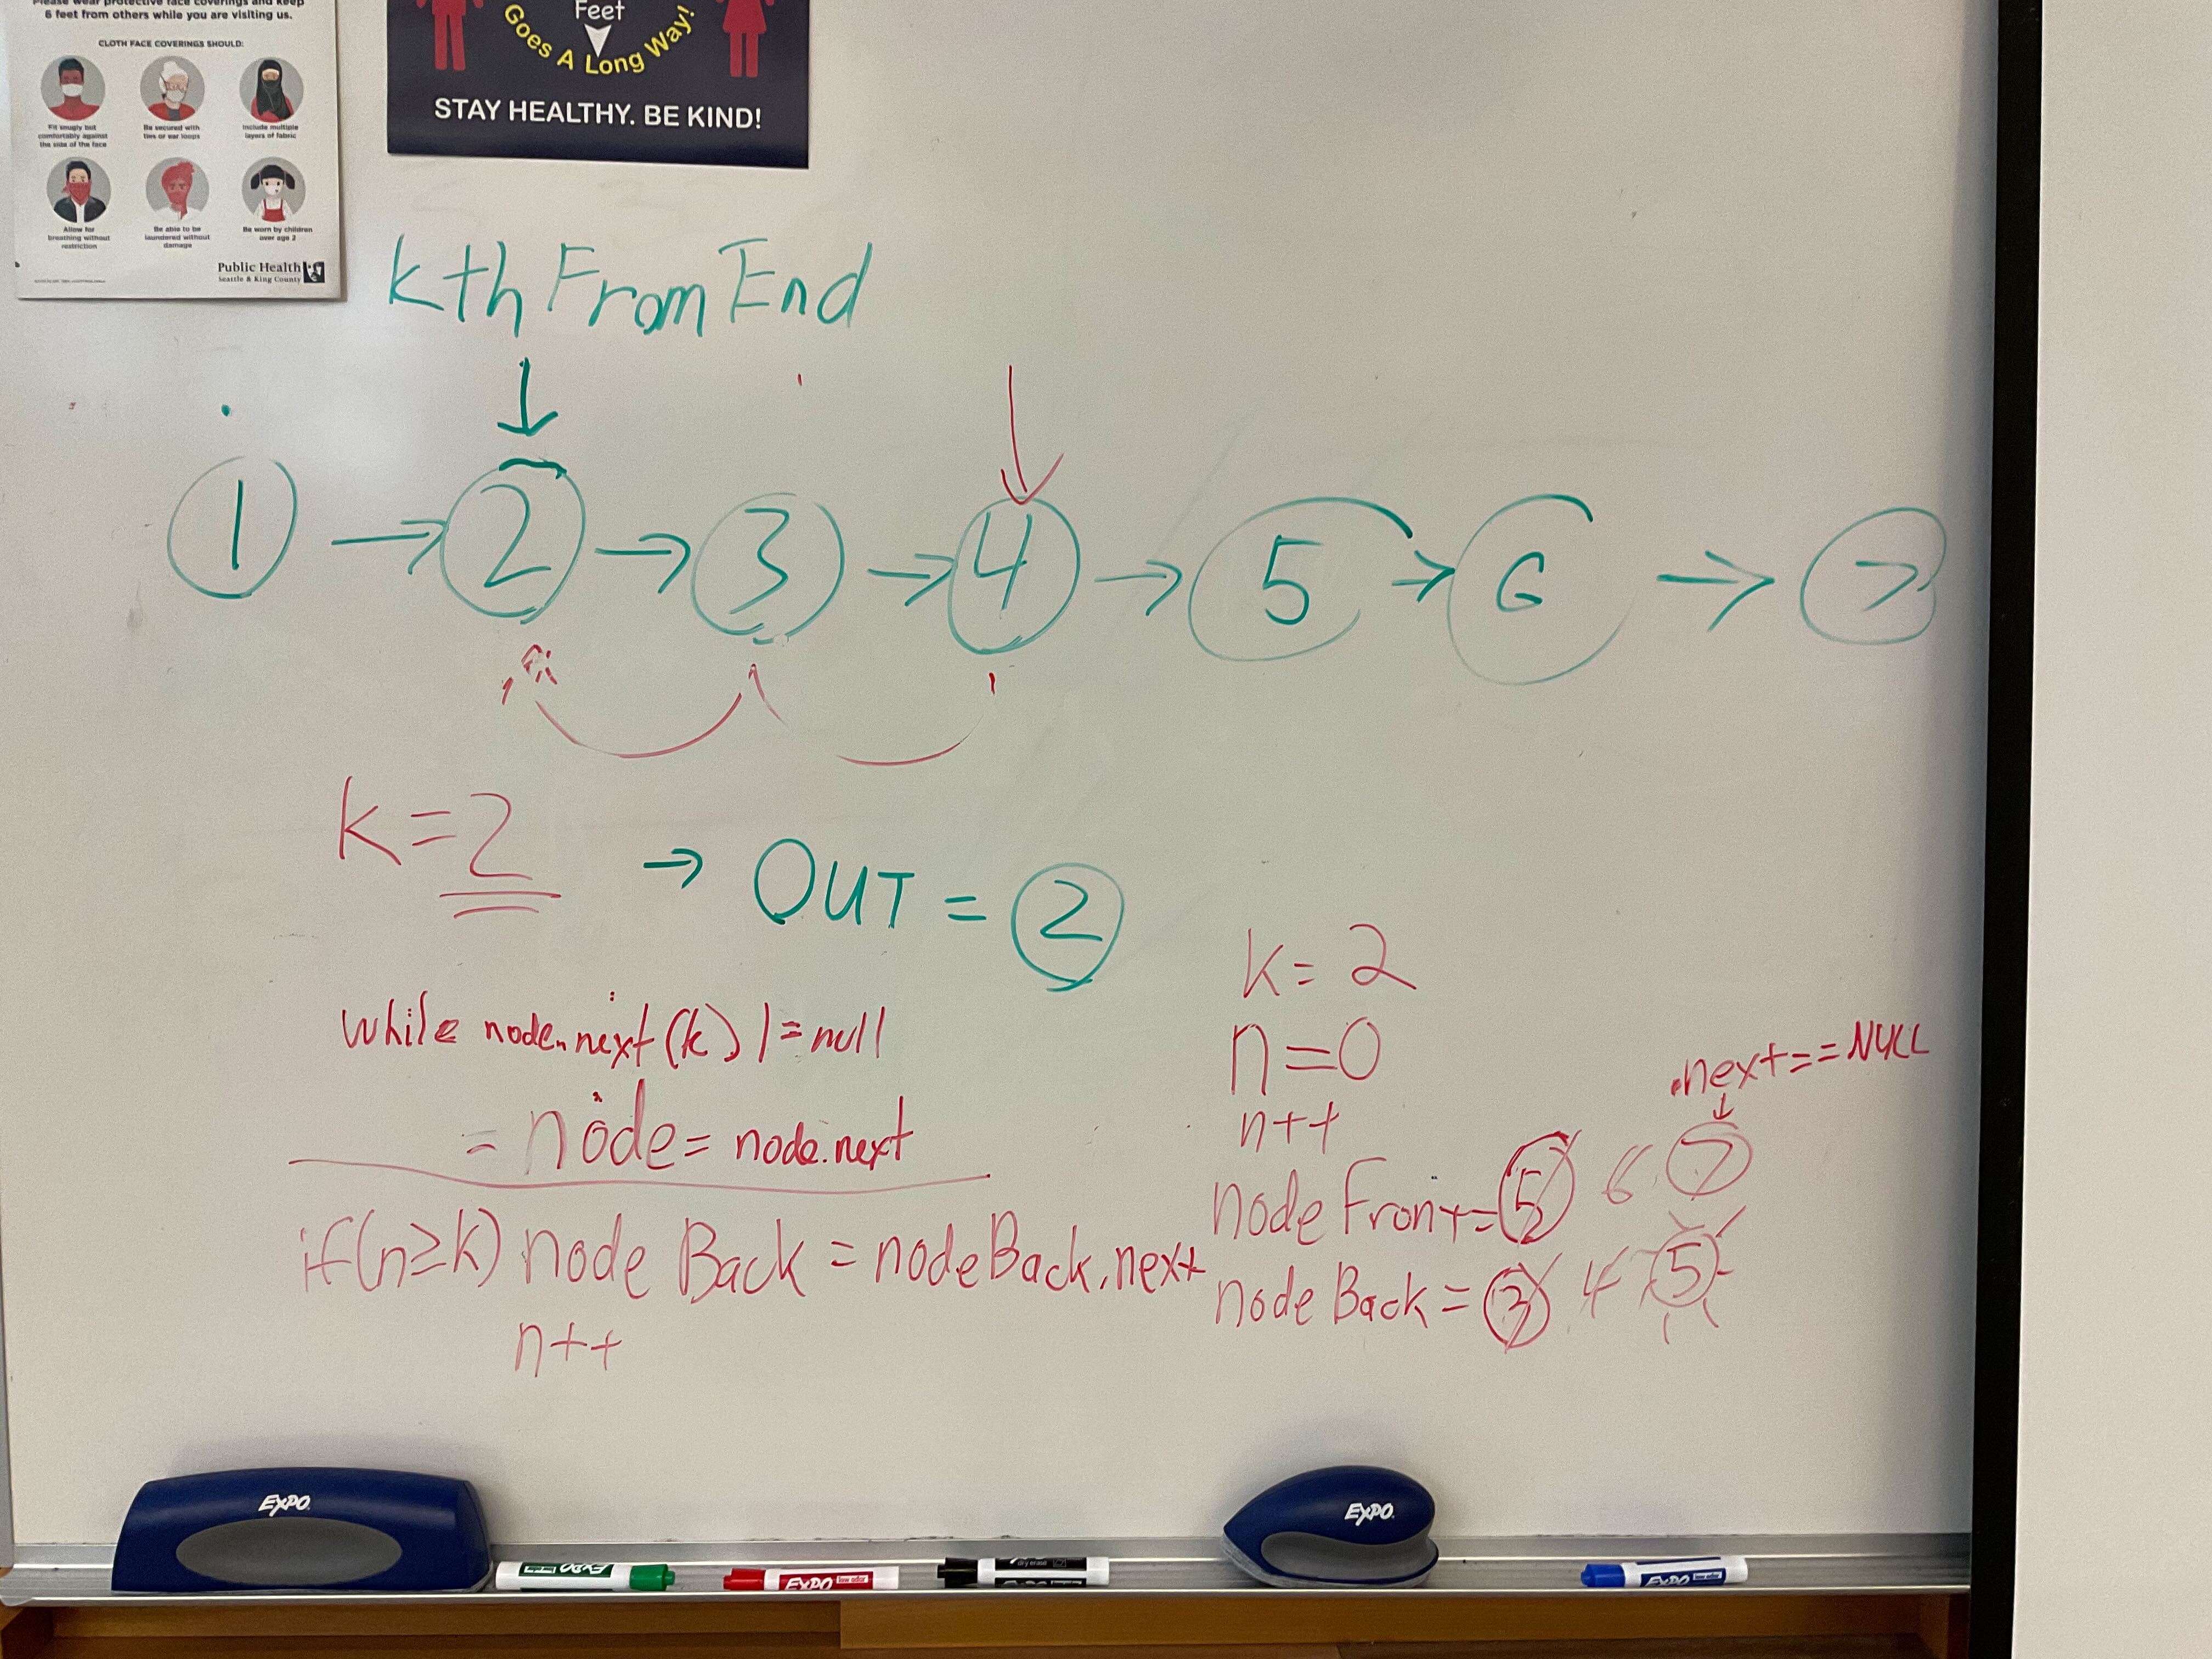 Please wear protective face coverings and keep
6 feet from others while you are visiting us.
CLOTH FACE COVERINGS SHOULD:
Fit snugly but
comfortably against
the side of the face
Be secured with
ties or ear loops
Include multiple
layers of fabric
Allow for
breathing without
restriction
Be able to be
laundered without
damage
Be worn by children
over age 2
Public Health
Seattle & King County
Feet
Goes A Long Way!
STAY HEALTHY. BE KIND!
kth From End
1 → 2 → 3 → 4 → 5 → 6 → 7
k = 2 → OUT = 2
while node.next(k) != null
= node = node.next
if(n≥k) node Back = nodeBack.next
n++
k = 2
n = 0
n++
.next == NULL
node Front = 5 6 7
node Back = 3 4 5
EXPO
EXPO
EXPO
EXPO low odor
dry erase
EXPO